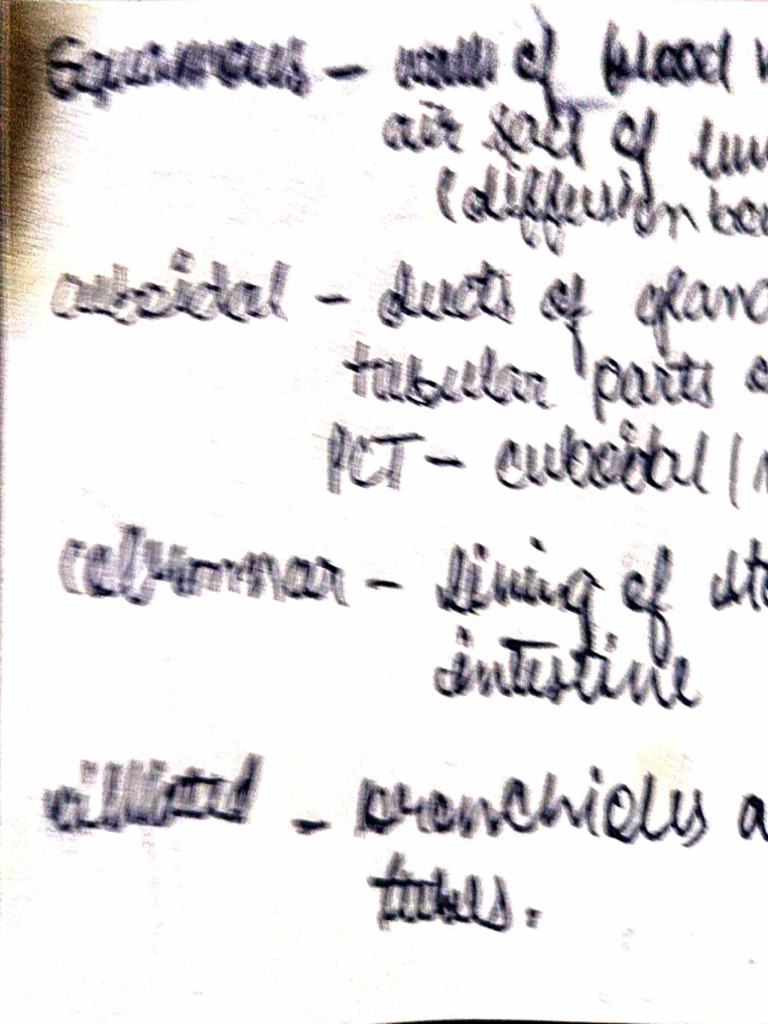 Squamous - walls of blood
air sacs of
(diffusion
cuboidal - ducts of
tubular parts
PCT - cuboidal /
columnar - lining of
intestine
ciliated - bronchioles
tubes.